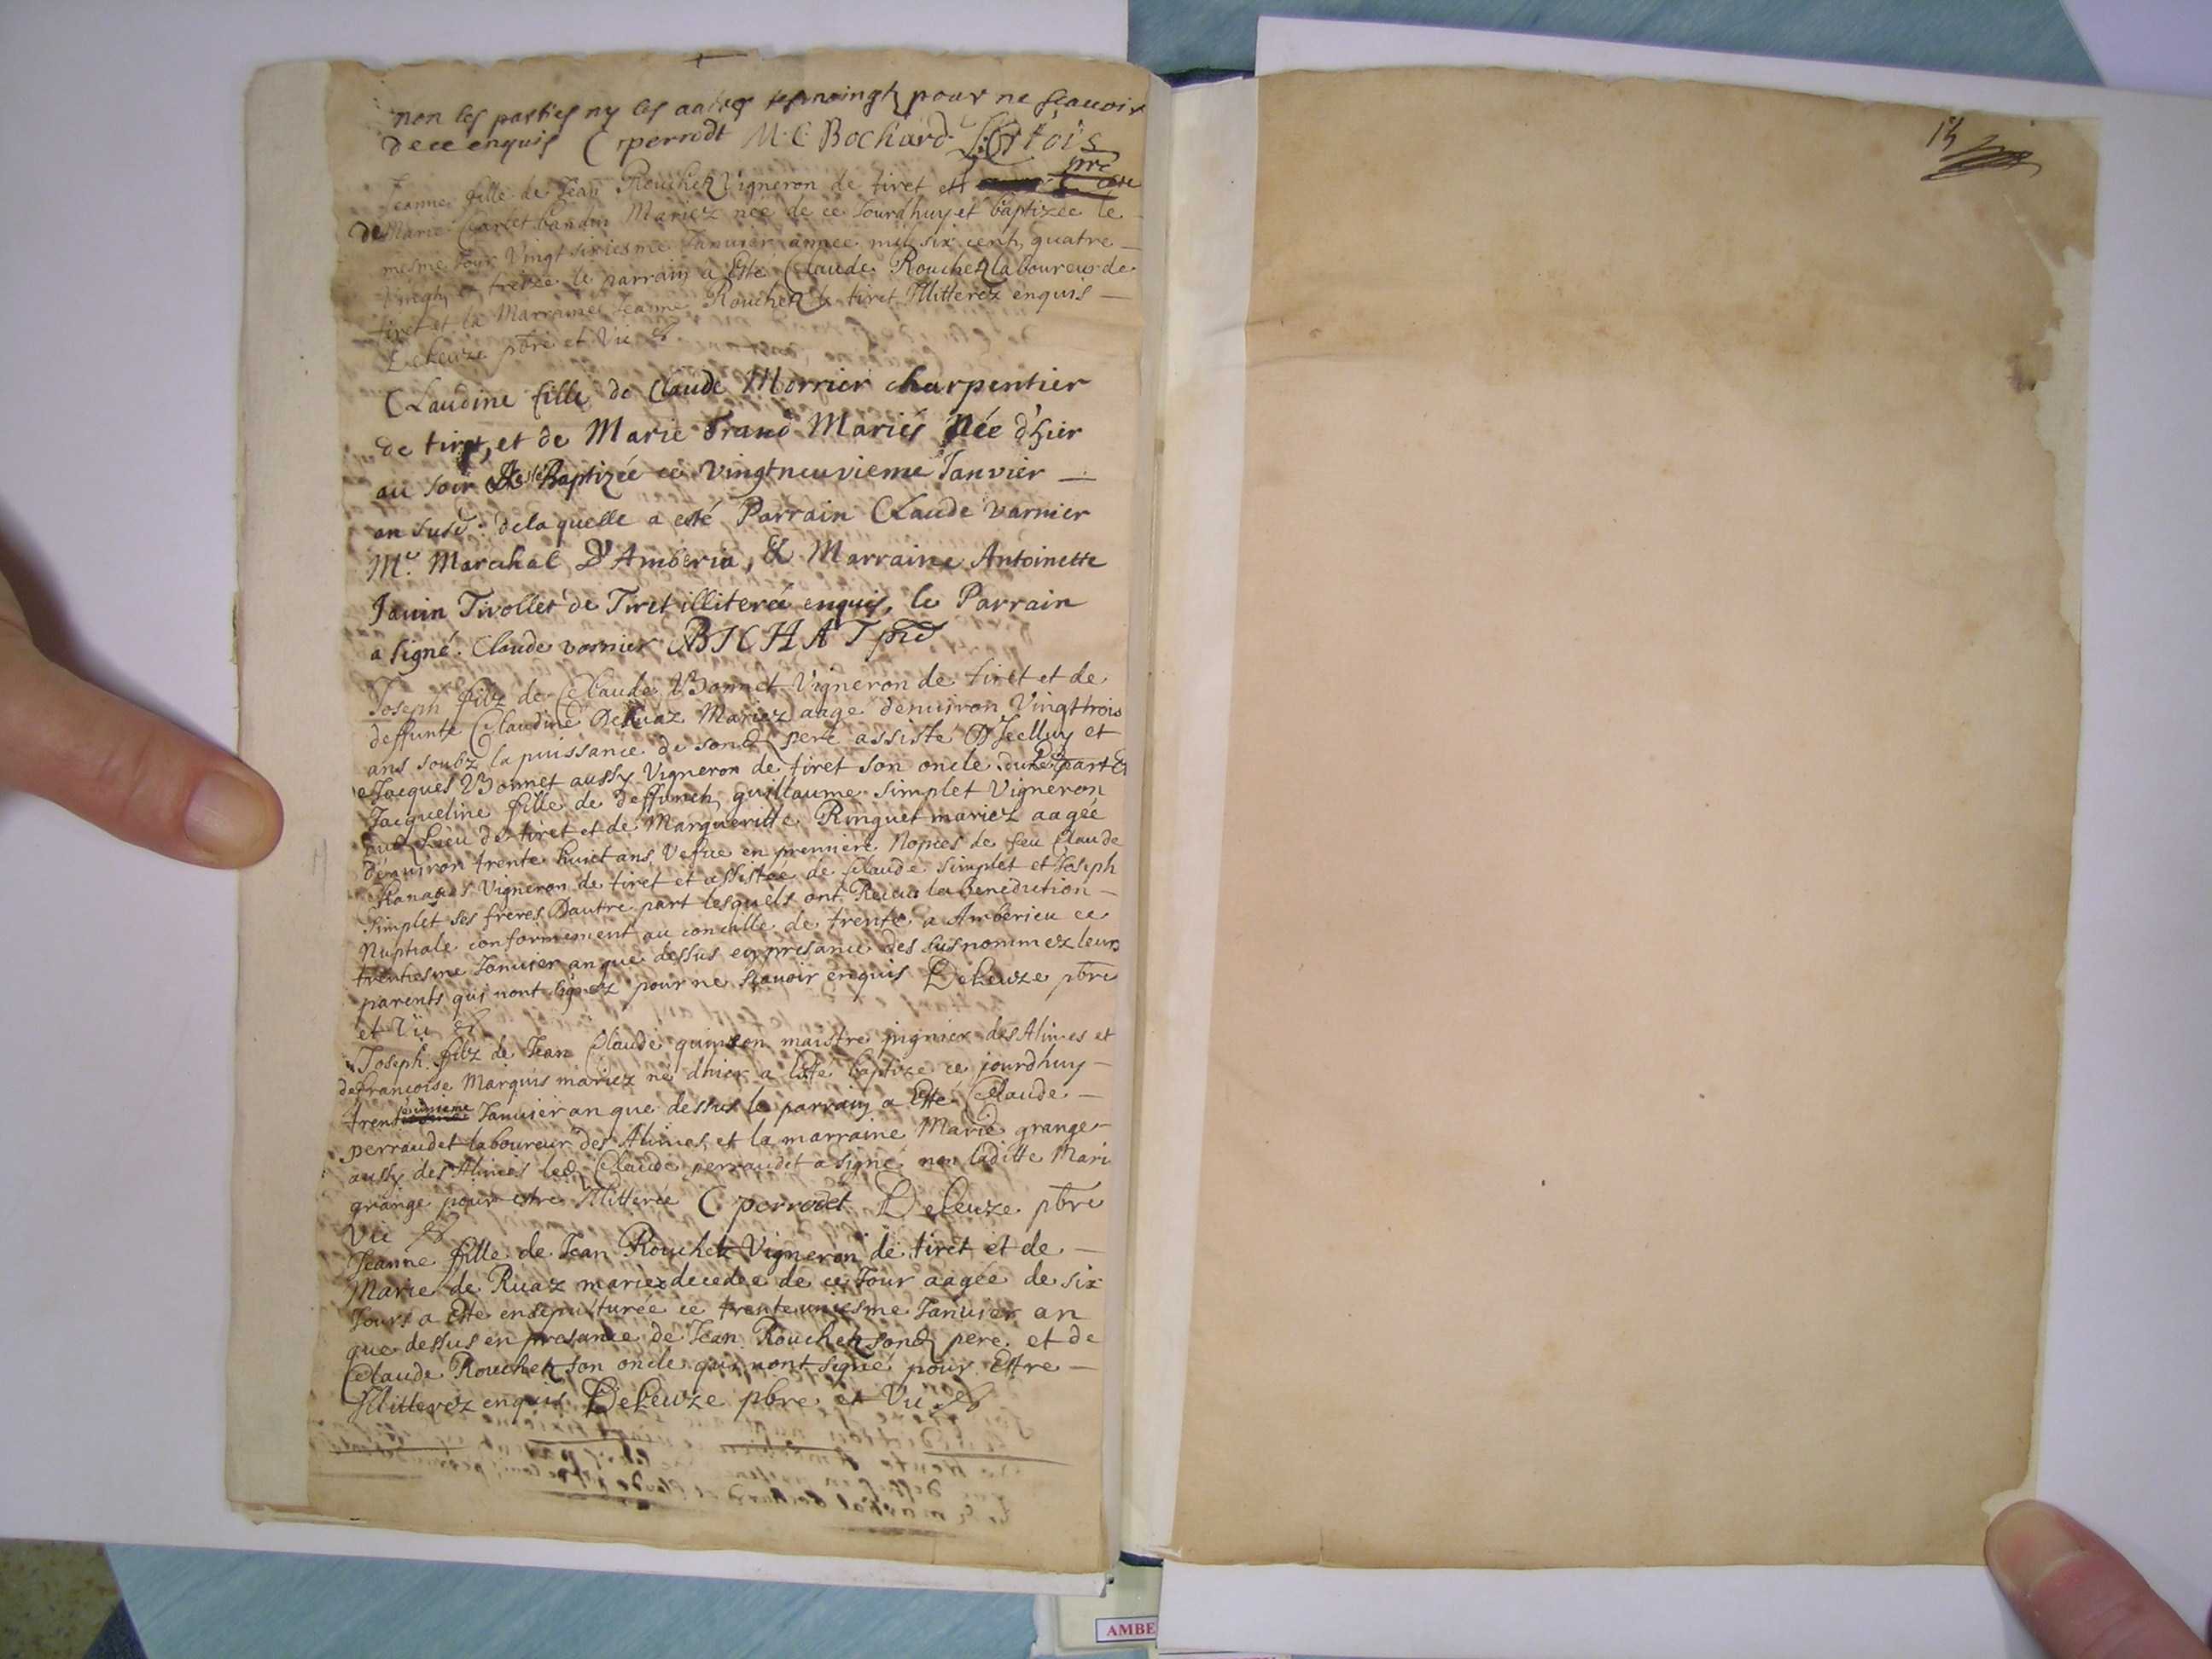 non les parties ny les autres tesmoingts pour ne sçauoir
de ce enquis C perrodt M. C. Bochard Cortois
pre
Jeanne fille de Jean Rouchet Vigneron de tiret et
de Marie mariez née de ce Jourdhuy et baptizée le
mesme Jour Vingt sixiesme Januier annee mil six cents quatre
Vingts et treize le parrain a Esté Claude Rouchet laboureur de
tiret et la Marraine Jeanne Rouchet de tiret Illitterez enquis
Deleuze pbre et Vic
Claudine fille de Claude Morrier charpentier
de tiret, et de Marie Brand Mariés Née d'hier
au soir & Baptizée ce vingtneuvieme Janvier
an susd. de laquelle a esté Parrain Claude varnier
Me. Marchal D'Amberiu, & Marraine Antoinette
Jauin Tivollet de Tiret illiterée enquis, le Parrain
a signé. Claude vornier BICHAT pre
Joseph filz de Claude Bonnet Vigneron de tiret et de
deffunte Claudine DeRuaz Mariez aage denuiron Vingttrois
ans soubz la puissance de sond pere assisté DJcelluy et
Jacques Bonnet aussy Vigneron de tiret son oncle dune part Et
Jacqueline fille de deffunct guillaume Simplet Vigneron
aud Lieu de tiret et de Margueritte Ringuet mariez aagée
denuiron trente huict ans Vefue en premiere Nopces de feu Claude
Vigneron de tiret et assistée de Claude Simplet et Joseph
Simplet ses freres Dautre part lesquels ont Receu la benediction
Nuptiale conformement au concille de trente a Amberieu ce
trentiesme Januier an que dessus en presance des susnommez leurs
parents qui nont signéz pour ne sçauoir enquis Deleuze pbre
et Vic
Joseph filz de Jean Claude quinson maistre pignier des Alimes et
de francoise Marquis mariez né dhier a Esté baptize ce jourdhuy
trent eunieme Januier an que dessus le parrain a Esté Claude
perraudet laboureur des Alimes, et la marraine Marie grange
aussy des Alimes led Claude perraudet a signé non laditte Mari
grange pour estre Illitterée C perrodet Deleuze pbre
Vic
Jeanne fille de Jean Rouchet Vigneron de tiret et de
Marie de Ruaz mariez decedée de ce Jour aagée de six
Jours a Esté ensepulturée ce trente uniesme Januier an
que dessus en presance de Jean Rouchet sond pere et de
Claude Rouchet son oncle qui nont signé pour Estre
Illitterez enquis Deleuze pbre et Vic
AMBE